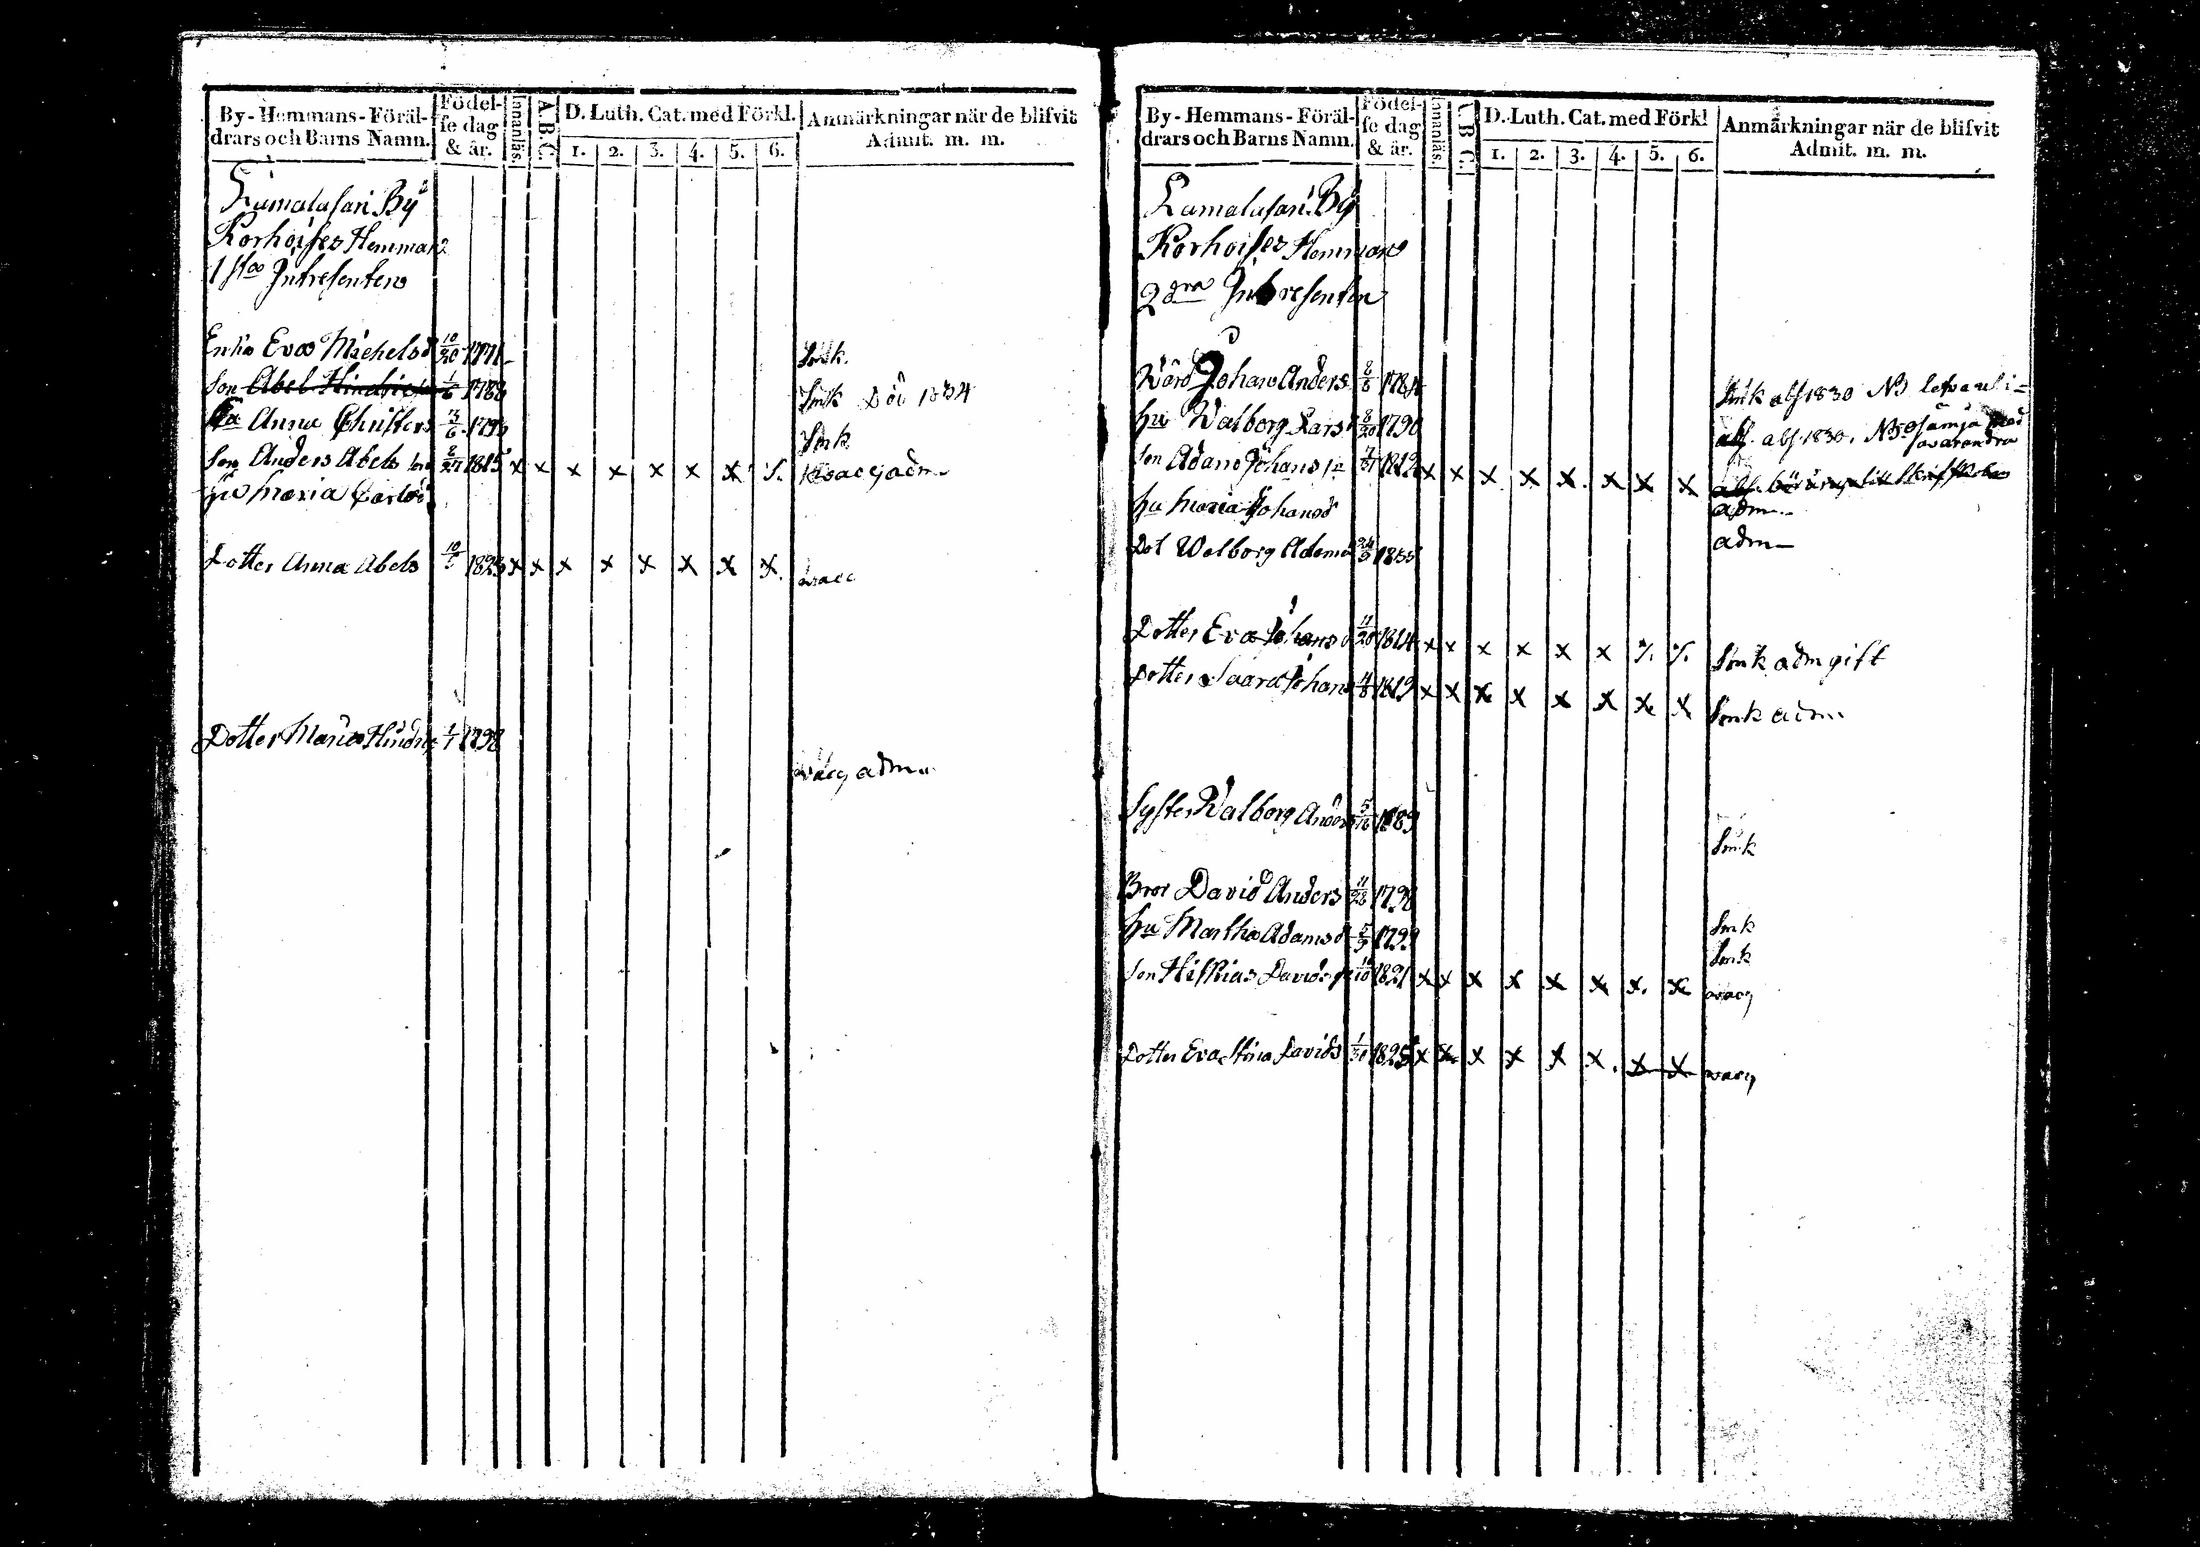 By-Hemmans-Föräl-
drars och Barns Namn.
Födel-
se dag
& år.
Innanläs.
A.B.C.
D. Luth. Cat. med Förkl.
1. 2. 3. 4. 5. 6.
Anmärkningar när de blifvit
Admit. m. m.
By
Korhoises Hemman
1sta Intresenten
Enka Eva Michelsd 10/20 1771 Smk.
Son Abel 1/6 1788 Smk Död 1834
Hu Anna Christers 3/6 1793 Smk
Son Anders Abels son 8/27 1815 x x x x x x x adm
Hu Maria Carlsd
Dotter Anna Abels 1823 x x x x x x x x
Dotter Maria 1/1 1798 adm
By-Hemmans-Föräl-
drars och Barns Namn.
Födel-
se dag
& år.
Innanläs.
A.B.C.
D. Luth. Cat. med Förkl
1. 2. 3. 4. 5. 6.
Anmärkningar när de blifvit
Admit. m. m.
By
Korhoises Hemman
2dra Intresenten
Wärd Johan Anders Smk abs 1830 NB
Hu Walborg Lars 8/20 1790 abs. 1830. NB sämja med
hvarandra
Son Adam Johans 1812 x x x x x x x x
adm
Hu Maria Johansd
adm
Dot Walborg Adams 1835
Dotter Eva Johans 11/20 1814 x x x x x x Smk adm gift
Dotter Saara Johans 1819 x x x x x x x x Smk adm
Syster Walborg Anders 5/16 1789 Smk
Bror David Anders 11/28 1798 Smk
Hu Martha Adamsd 1799 Smk
Son Hiskias Davids 1821 x x x x x x x x
Dotter Eva Stina Davids 1/30 1825 x x x x x x x x